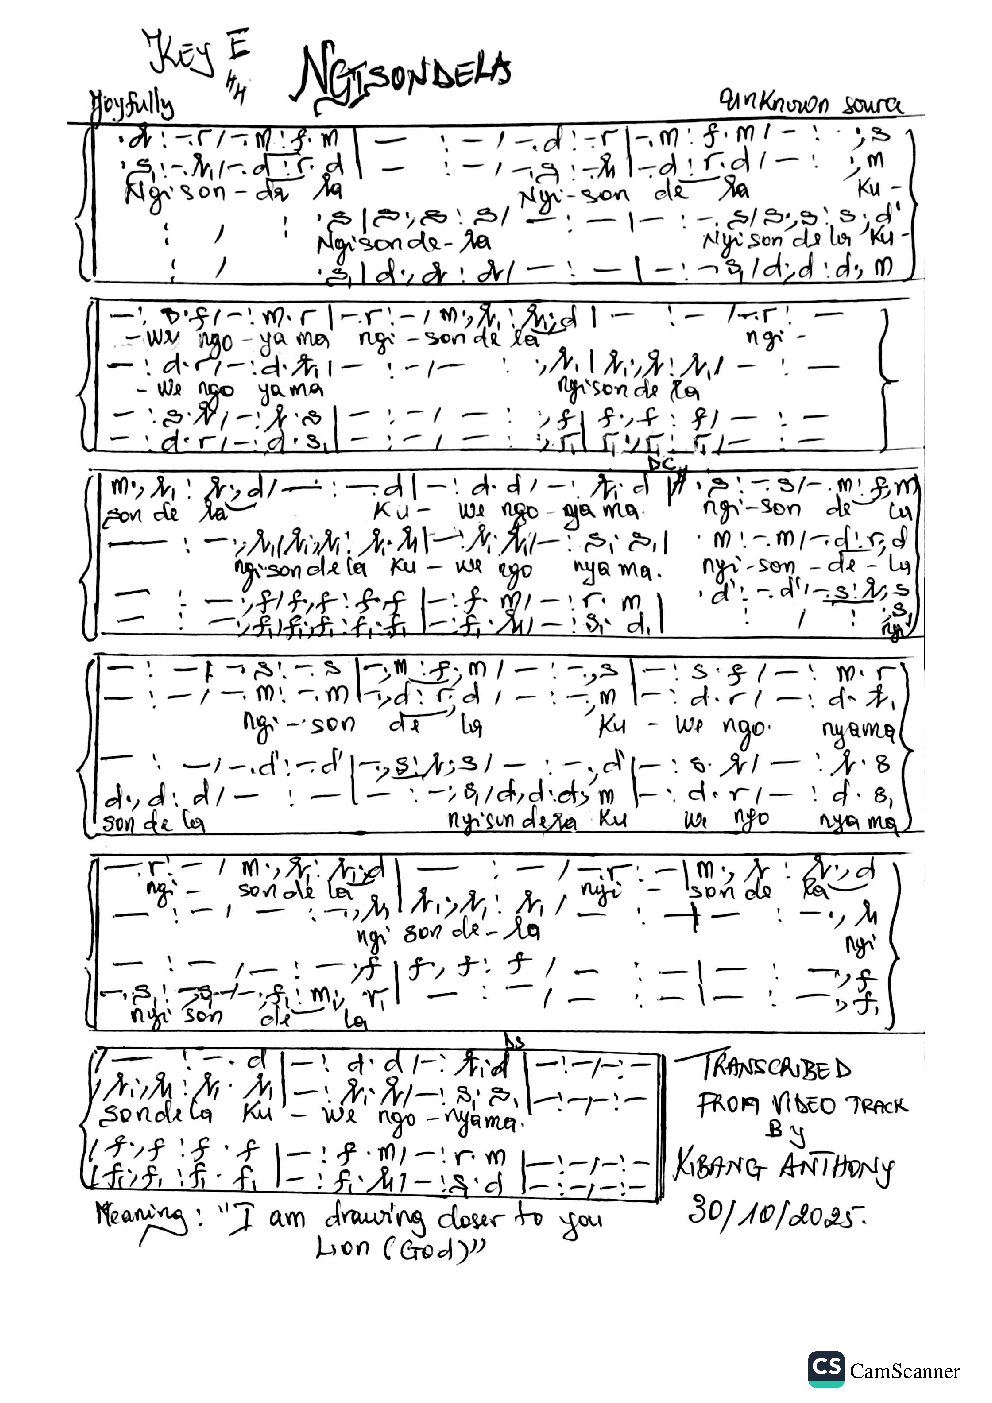 Key E
NGISONDELA
Joyfully
unknown source
.d : -.r / -.m : f.m | — : — / -.d : -.r | -.m : f.m / — : .,s
.s, : -.l, / -.d : r.d | — : — / -.s, : -.l, | -.d : r.d / — : .,m
Ngi son - de la Ngi - son de la Ku -
: / : .s | s.,s : s / — : — | — : -.s / s.,s : s.,d'
Ngi son de - la Ngi son de la Ku -
: / .s, | d.,d : d / — : — | — : -.s, / d.,d : d., m
— : s.f / — : m.r | -.r : — / m.,l, : l,.,d | — : — / -.r : —
- We ngo - ya ma ngi - son de la ngi -
— : d.r / — : d.t, | — : — / — : .,l, | l,.,l, : l, / — : —
- We ngo ya ma ngi son de la
— : s.l / — : l.s | — : — / — : .,f | f.,f : f / — : —
— : d.r / — : d.s, | — : — / — : .,r, | r,.,r, : r, / — : —
DC
m.,l, : l,.,d / — : -.d | — : d.d / — : l,.d || .s : -.s / -.m : f,m
son de la Ku - We ngo - ya ma ngi - son de la
— : -.,l, / l,.,l, : l,.l, | — : l,.l, / — : s,.s, | m : -.m / -.d : r,d
ngi son de la Ku - we ngo nya ma. ngi - son - de - la
— : -.,f / f.,f : f.f | — : f.m / — : r.m | .d' : -.d' / -.s : l,s
— : -.,f, / f,.,f, : f,.f, | — : f,.l, / — : s,.d, | : / : .,s,
ngi
— : — / -.s : -.s | -,m : f,m / — : -.,s | — : s.f / — : m.r
— : — / -.m : -.m | -,d : r,d / — : -.,m | — : d.r / — : d.t,
ngi - son de la Ku - We ngo nyama
— : — / -.d' : -.d' | -,s : l,s / — : -.,d' | — : s.l / — : l.s
d.,d : d / — : — | — : -.,s, / d.,d : d., m | — : d.r / — : d.s,
son de la ngi son de la Ku We ngo nyama
-.r : — / m.,l, : l,.,d | — : — / -.r : — | m.,l, : l,.,d
ngi - son de la ngi - son de la
— : — / — : -.,l, | l,.,l, : l, / — : — | — : -.,l,
ngi son de - la ngi
— : — / — : -.,f | f.,f : f / — : — | — : -.,f
-.s, : -.s, / -.f, : m,., r, | — : — / — : — | — : -.,f,
ngi son de la
DS
— : -.d | — : d.d / — : l,.d | — : — / — : —
/ l,.,l, : l,.l, | — : l,.l, / — : s,.s, | — : — / — : —
son de la Ku - We ngo - nyama.
/ f.,f : f.f | — : f.m / — : r.m | — : — / — : —
/ f,.,f, : f,.f, | — : f,.l, / — : s,.d | — : — / — : —
TRANSCRIBED
FROM VIDEO TRACK
By
KIBANG ANTHONY
30/10/2025.
Meaning: "I am drawing closer to you
Lion (God)"
CS CamScanner